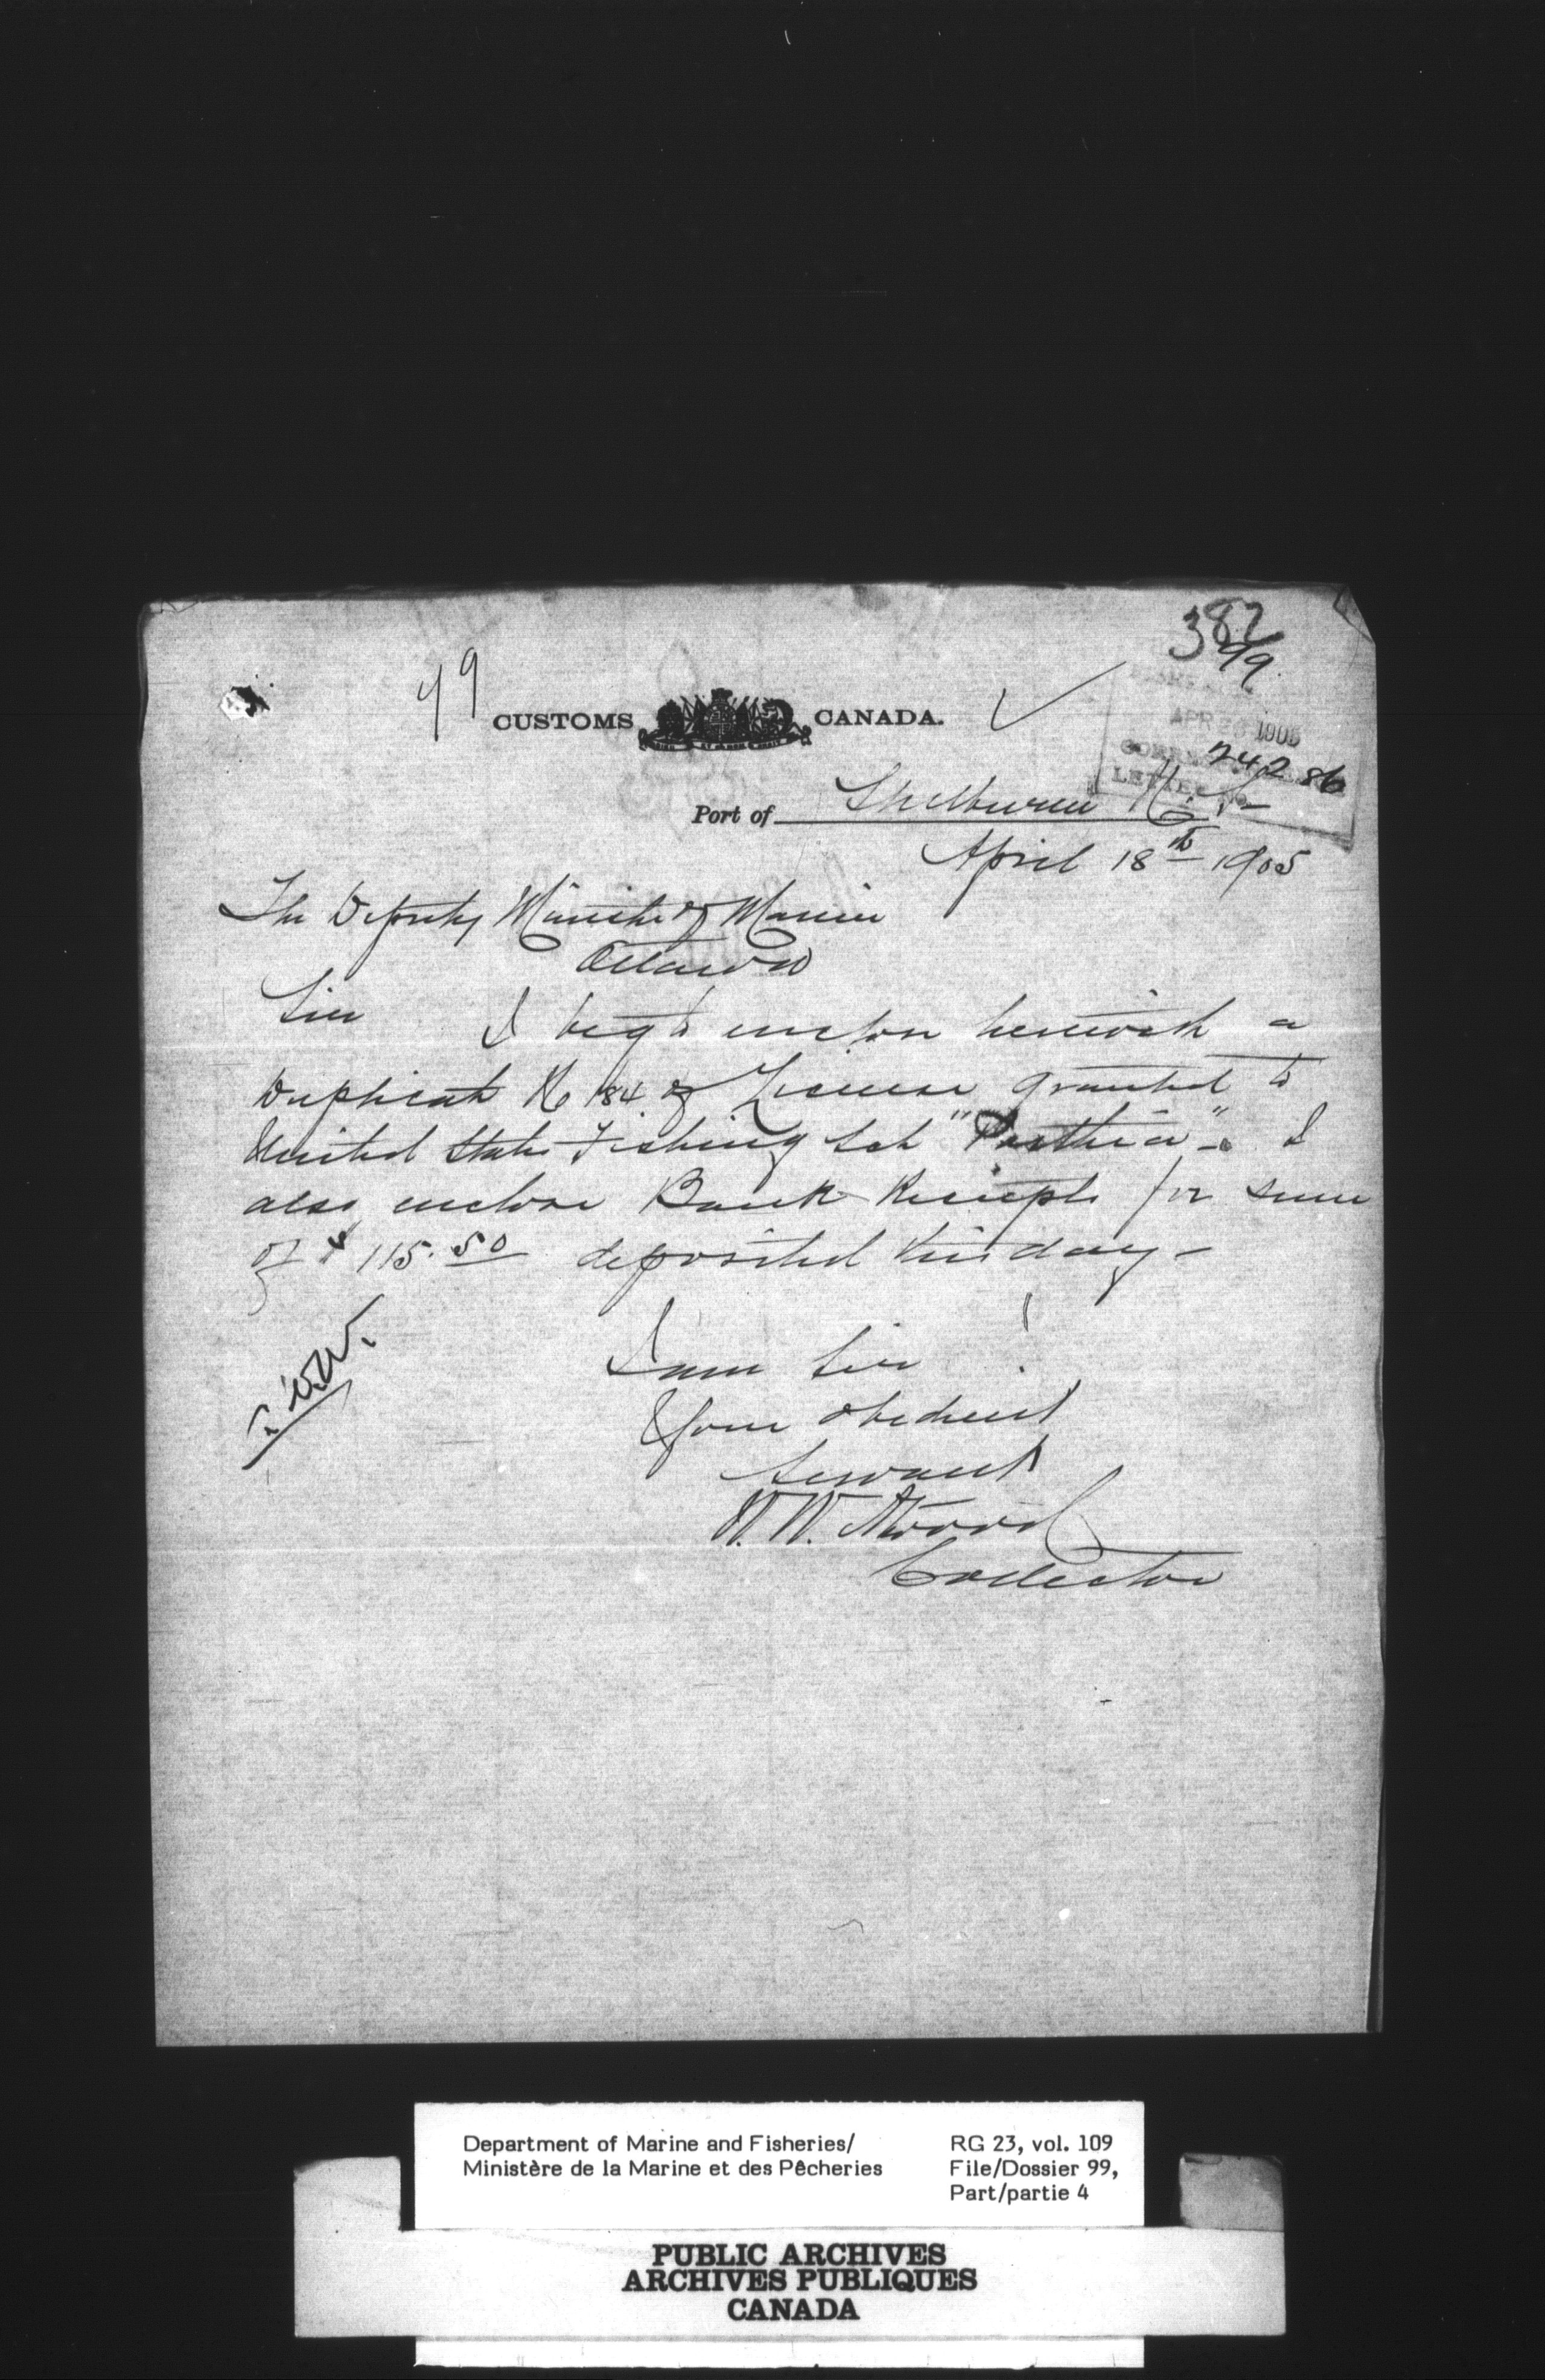 382
99
99
CUSTOMS CANADA.
APR 26 1905
24286
LETTER No.
Port of Shelburne N.S.
April 18th 1905
The Deputy Minister of Marine
Ottawa
Sir I beg to enclose herewith a
Duplicate No 184 of License granted to
United States Fishing Sch "Parthia". I
also enclose Bank Receipts for sum
of $115.50 deposited this day -
I am Sir
Your obedient
Servant
W. W. Atwood
Collector
Department of Marine and Fisheries/
Ministère de la Marine et des Pêcheries
RG 23, vol. 109
File/Dossier 99,
Part/partie 4
PUBLIC ARCHIVES
ARCHIVES PUBLIQUES
CANADA